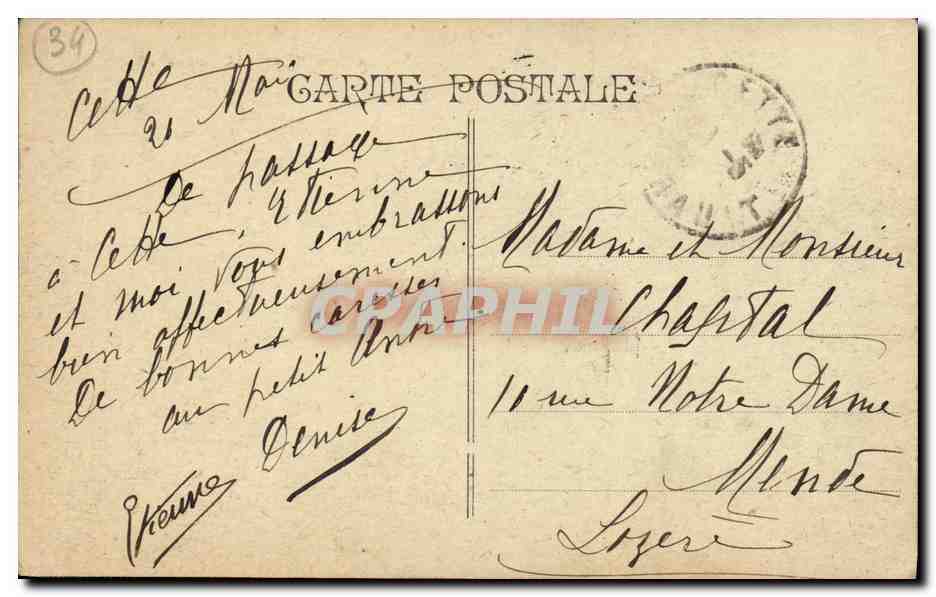 34
CARTE POSTALE
Cette
21 Mai
De passage
à Cette, Etienne
et moi vous embrassons
bien affectueusement.
De bonnes caresses
au petit André
Denise
Etienne
Madame et Monsieur
Chaptal
10 rue Notre Dame
Mende
Lozère
CPAPHIL